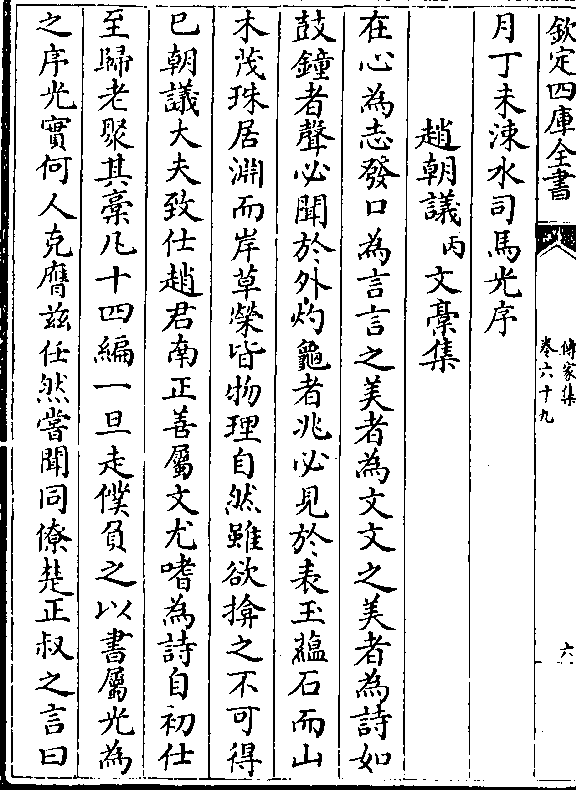 欽定四庫全書
傳家集
卷六十九
六
月丁未涑水司馬光序
趙朝議丙文藁集
在心為志發口為言言之美者為文文之美者為詩如
鼓鐘者聲必聞於外灼龜者兆必見於表玉蘊石而山
木茂珠居淵而岸草榮皆物理自然雖欲揜之不可得
已朝議大夫致仕趙君南正善屬文尤嗜為詩自初仕
至歸老聚其藁凡十四編一旦走僕負之以書屬光為
之序光實何人克膺茲任然嘗聞同僚楚正叔之言曰